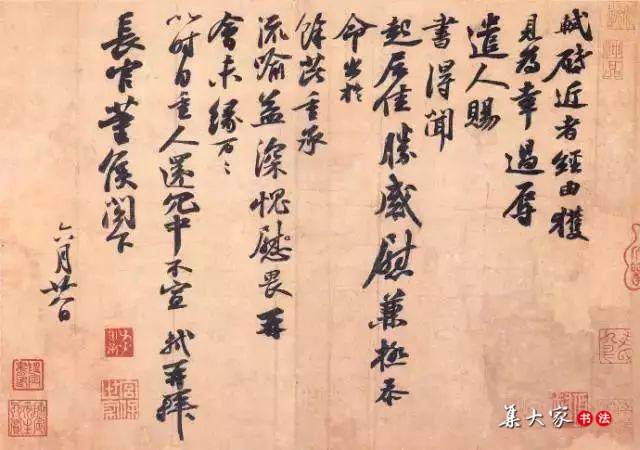 軾啓近者經由獲
見為幸過辱
遣人賜
書得聞
起居佳勝感慰兼極忝
命出於
餘芘重承
流喻益深愧慰畏再
會未緣万〻
以時自重人還冗中不宣 軾再拜
長官董侯閣下
六月廿八日
集大家书法